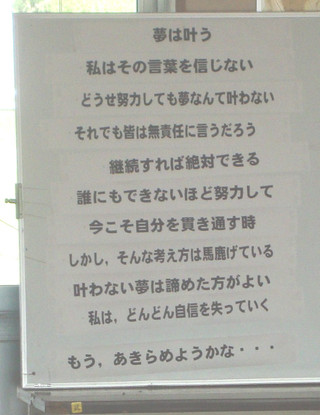 夢は叶う
私はその言葉を信じない
どうせ努力しても夢なんて叶わない
それでも皆は無責任に言うだろう
継続すれば絶対できる
誰にもできないほど努力して
今こそ自分を貫き通す時
しかし，そんな考え方は馬鹿げている
叶わない夢は諦めた方がよい
私は，どんどん自信を失っていく
もう，あきらめようかな・・・